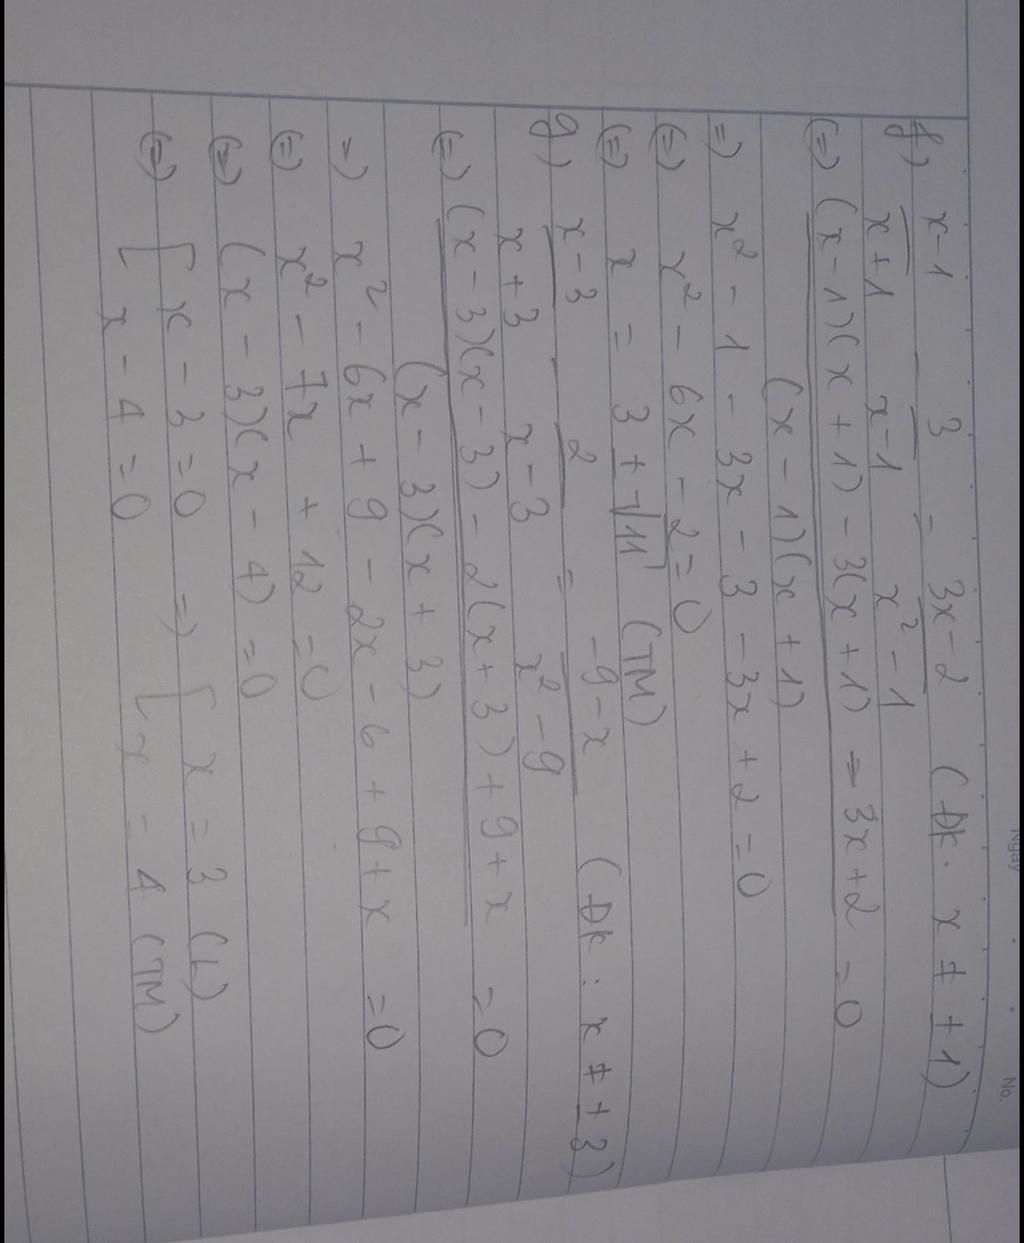 Ngày . . No.
f) \frac{x-1}{x+1} - \frac{3}{x-1} = \frac{3x-2}{x^2-1} (ĐK. x ≠ ±1)
(=) \frac{(x-1)(x+1) - 3(x+1) - 3x+2}{(x-1)(x+1)} = 0
=) x² - 1 - 3x - 3 - 3x + 2 = 0
(=) x² - 6x - 2 = 0
(=) x = 3 ± √11 (TM)
g) \frac{x-3}{x+3} - \frac{2}{x-3} = \frac{-9-x}{x^2-9} (ĐK: x ≠ ±3)
(=) \frac{(x-3)(x-3) - 2(x+3) + 9+x}{(x-3)(x+3)} = 0
=) x² - 6x + 9 - 2x - 6 + 9 + x = 0
(=) x² - 7x + 12 = 0
(=) (x-3)(x-4) = 0
(=) [ x - 3 = 0 =) [ x = 3 (L)
[ x - 4 = 0 [ x = 4 (TM)